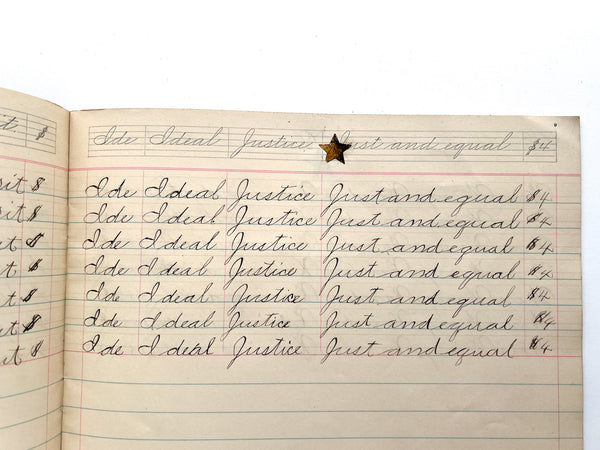 it. $
Ide Ideal Justice Just and equal $4
sit $
Ide Ideal Justice Just and equal $4
sit $
Ide Ideal Justice Just and equal $4
it $
Ide Ideal Justice Just and equal $4
t $
Ide Ideal Justice Just and equal $4
t $
Ide Ideal Justice Just and equal $4
it $
Ide Ideal Justice Just and equal $4
it $
Ide Ideal Justice Just and equal $4